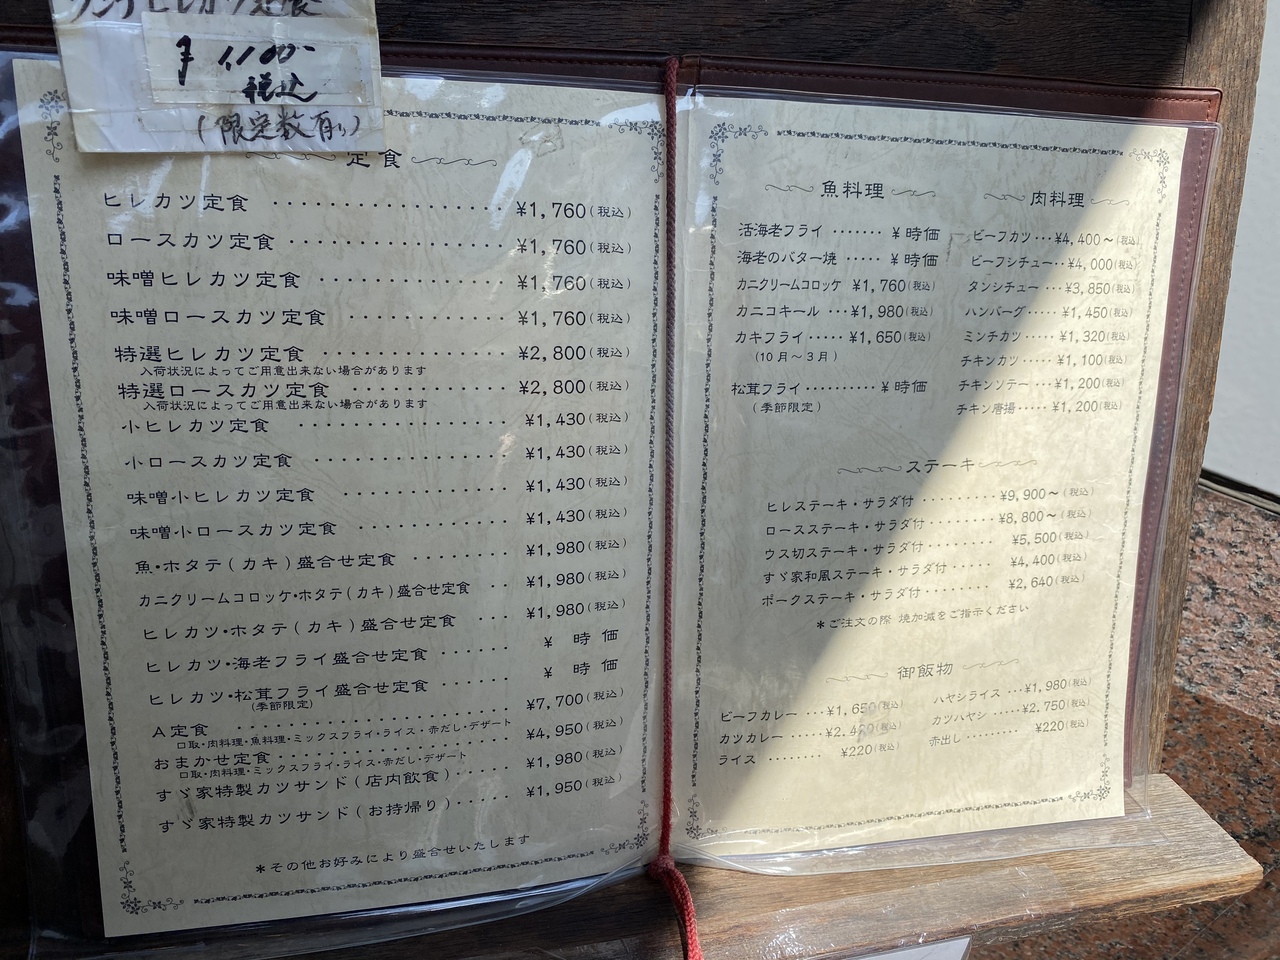 ランチヒレカツ定食
¥1,100-
税込
(限定数有り)
定食
ヒレカツ定食 ・・・・・・・・・・・・・・・・・ ¥1,760(税込)
ロースカツ定食 ・・・・・・・・・・・・・・・・ ¥1,760(税込)
味噌ヒレカツ定食 ・・・・・・・・・・・・・・ ¥1,760(税込)
味噌ロースカツ定食 ・・・・・・・・・・・・ ¥1,760(税込)
特選ヒレカツ定食 ・・・・・・・・・・・・・・ ¥2,800(税込)
入荷状況によってご用意出来ない場合があります
特選ロースカツ定食 ・・・・・・・・・・・・ ¥2,800(税込)
入荷状況によってご用意出来ない場合があります
小ヒレカツ定食 ・・・・・・・・・・・・・・・ ¥1,430(税込)
小ロースカツ定食 ・・・・・・・・・・・・・・ ¥1,430(税込)
味噌小ヒレカツ定食 ・・・・・・・・・・・・ ¥1,430(税込)
味噌小ロースカツ定食 ・・・・・・・・・・・ ¥1,430(税込)
魚・ホタテ(カキ)盛合せ定食 ・・・・・・・ ¥1,980(税込)
カニクリームコロッケ・ホタテ(カキ)盛合せ定食 ・・ ¥1,980(税込)
ヒレカツ・ホタテ(カキ)盛合せ定食 ・・・ ¥1,980(税込)
ヒレカツ・海老フライ盛合せ定食 ・・・・・ ¥ 時価
ヒレカツ・松茸フライ盛合せ定食 ・・・・・ ¥ 時価
(季節限定)
A定食 ・・・・・・・・・・・・・・・・・・・・ ¥7,700(税込)
口取・肉料理・魚料理・ミックスフライ・ライス・赤だし・デザート
おまかせ定食 ・・・・・・・・・・・・・・・・ ¥4,950(税込)
口取・肉料理・ミックスフライ・ライス・赤だし・デザート
すゞ家特製カツサンド(店内飲食) ・・・・・ ¥1,980(税込)
すゞ家特製カツサンド(お持帰り) ・・・・・ ¥1,950(税込)
*その他お好みにより盛合せいたします
魚料理
活海老フライ ・・・・・・・ ¥ 時価
海老のバター焼 ・・・・・ ¥ 時価
カニクリームコロッケ ¥1,760(税込)
カニコキール ・・・ ¥1,980(税込)
カキフライ ・・・・・ ¥1,650(税込)
(10月〜3月)
松茸フライ ・・・・・・・・・ ¥ 時価
(季節限定)
肉料理
ビーフカツ ・・・ ¥4,400〜(税込)
ビーフシチュー ・・ ¥4,000(税込)
タンシチュー ・・・ ¥3,850(税込)
ハンバーグ ・・・・ ¥1,450(税込)
ミンチカツ ・・・・・ ¥1,320(税込)
チキンカツ ・・・・ ¥1,100(税込)
チキンソテー ・・・ ¥1,200(税込)
チキン唐揚 ・・・・・ ¥1,200(税込)
ステーキ
ヒレステーキ・サラダ付 ・・・・・・・・・ ¥9,900〜(税込)
ロースステーキ・サラダ付 ・・・・・・・・ ¥8,800〜(税込)
ウス切ステーキ・サラダ付 ・・・・・・・・ ¥5,500(税込)
すゞ家和風ステーキ・サラダ付 ・・・・・ ¥4,400(税込)
ポークステーキ・サラダ付 ・・・・・・・・ ¥2,640(税込)
*ご注文の際 焼加減をご指示ください
御飯物
ビーフカレー ・・・ ¥1,650(税込)
カツカレー ・・・・・ ¥2,4(税込)
ライス ・・・・・・・・ ¥220(税込)
ハヤシライス ・・・ ¥1,980(税込)
カツハヤシ ・・・・・ ¥2,750(税込)
赤出し ・・・・・・・・ ¥220(税込)